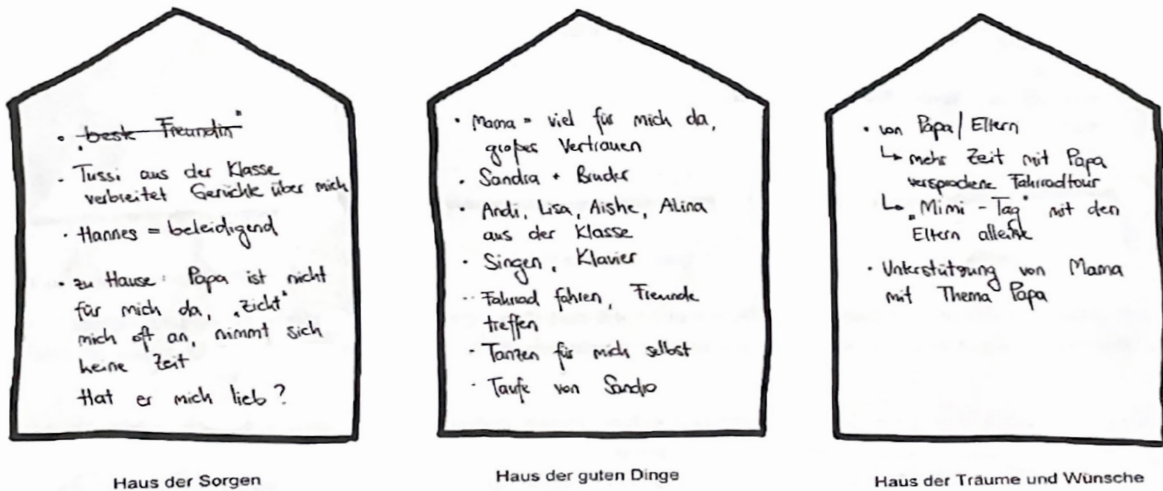 • „beste Freundin"
• Tussi aus der Klasse
verbreitet Gerüchte über mich
• Hannes = beleidigend
• zu Hause: Papa ist nicht
für mich da, „zickt"
mich oft an, nimmt sich
keine Zeit
Hat er mich lieb?
Haus der Sorgen
• Mama = viel für mich da,
großes Vertrauen
• Sandra + Bruder
• Andi, Lisa, Aishe, Alina
aus der Klasse
• Singen, Klavier
• Fahrrad fahren, Freunde
treffen
• Tanzen für mich selbst
• Taufe von
Haus der guten Dinge
• von Papa / Eltern
↳ mehr Zeit mit Papa
versprochene Fahrradtour
↳ „Mimi-Tag" mit den
Eltern alleine
• Unterstützung von Mama
mit Thema Papa
Haus der Träume und Wünsche